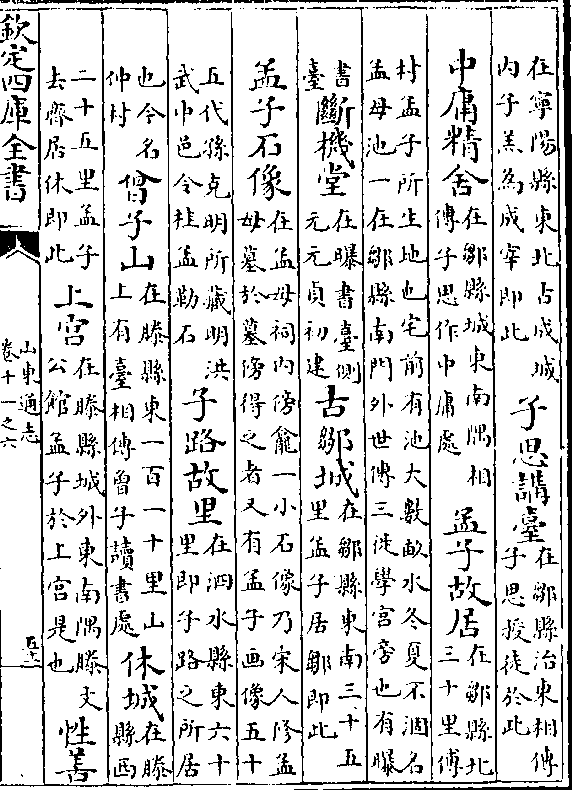 在寧陽縣東北古成城
内子羔為成宰即此
子思講臺
在鄒縣治東相傳
子思授徒於此
中庸精舍
在鄒縣城東南隅相
傳子思作中庸處
孟子故居
在鄒縣北
三十里傅
村孟子所生地也宅前有池大數畝水冬夏不涸名
孟母池一在鄒縣南門外世傳三徙學宮旁也有曝
書
臺
斷機堂
在曝書臺側
元元貞初建
古鄒城
在鄒縣東南三十五
里孟子居鄒即此
孟子石像
在孟母祠内傍龕一小石像乃宋人修孟
母墓於墓傍得之者又有孟子画像五十
五代孫克明所藏明洪
武中邑令桂孟勒石
子路故里
在泗水縣東六十
里即子路之所居
也今名
仲村
曾子山
在滕縣東一百一十里山
上有臺相傳曾子讀書處
休城
在滕
縣西
二十五里孟子
去齊居休即此
上宮
在滕縣城外東南隅滕文
公館孟子於上宮是也
性善
欽定四庫全書
山東通志
卷十一之六